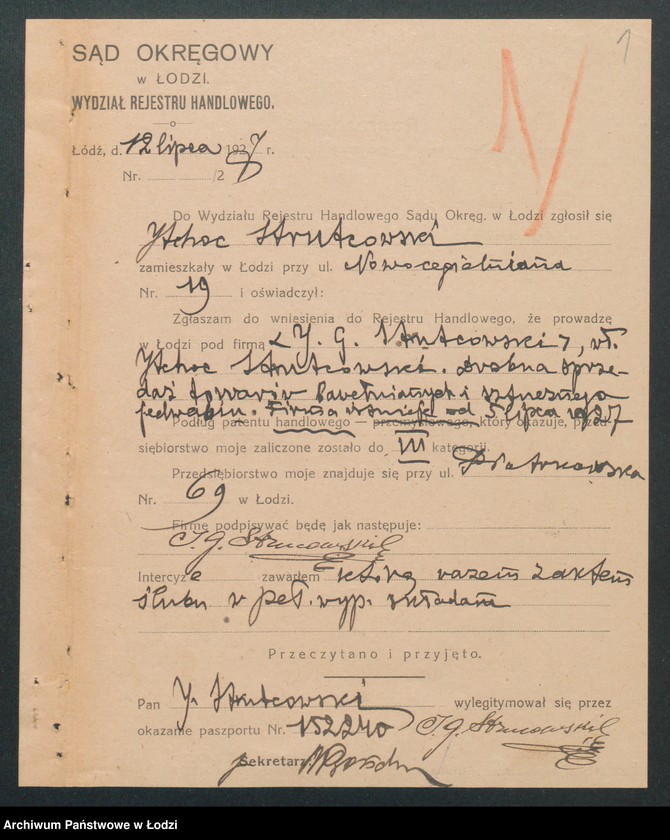 1
SĄD OKRĘGOWY
W ŁODZI.
WYDZIAŁ REJESTRU HANDLOWEGO.
Łódź, d. 12 lipca 1927 r.
Nr. /2
Do Wydziału Rejestru Handlowego Sądu Okręg. w Łodzi zgłosił się
zamieszkały w Łodzi przy ul. Nowocegielniana
Nr. 19 i oświadczył:
Zgłaszam do wniesienia do Rejestru Handlowego, że prowadzę
w Łodzi pod firmą
drobna sprze-
daż towarów bawełnianych i sztucznego
jedwabiu. Firma istnieje od 5 lipca 1927
Podług patentu handlowego — przemysłowego, który okazuje, przed-
siębiorstwo moje zaliczone zostało do III kategorji.
Przedsiębiorstwo moje znajduje się przy ul. Piotrkowska
Nr. 69 w Łodzi.
Firmę podpisywać będę jak następuje:
Intercyzę zawarłem którą razem z aktem
ślubu w pełn. wyp. składam
Przeczytano i przyjęto.
Pan wylegitymował się przez
okazanie paszportu Nr. 152240
Sekretarz
Archiwum Państwowe w Łodzi